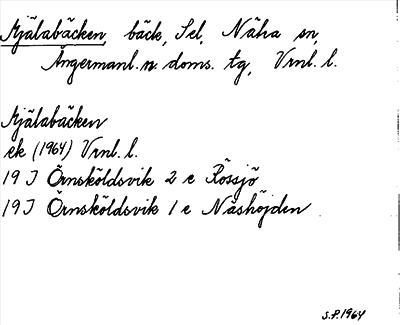 Mjälabäcken, bäck, Sel, Näha sn,
Ångermanl. n. doms. tg, Vrnl. l.
Mjälabäcken
ek (1964) Vrnl. l.
19 J Örnsköldsvik 2 e Rössjö
19 J Örnsköldsvik 1 e Näshöjden
S.P. 1964